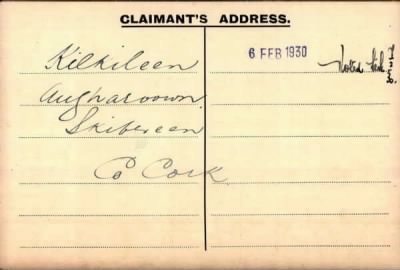 CLAIMANT'S ADDRESS.
Kilkileen
Aughavoown
Skibereen
Co Cork
6 FEB 1930
Noted